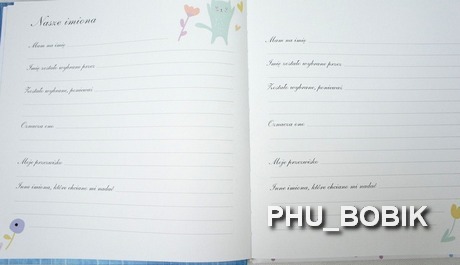 Nasze imiona
Mam na imię
Imię zostało wybrane przez
Zostało wybrane, ponieważ
Oznacza ono
Moje przezwisko
Inne imiona, które chciano mi nadać
Mam na imię
Imię zostało wybrane przez
Zostało wybrane, ponieważ
Oznacza ono
Moje przezwisko
Inne imiona, które chciano mi nadać
PHU_BOBIK